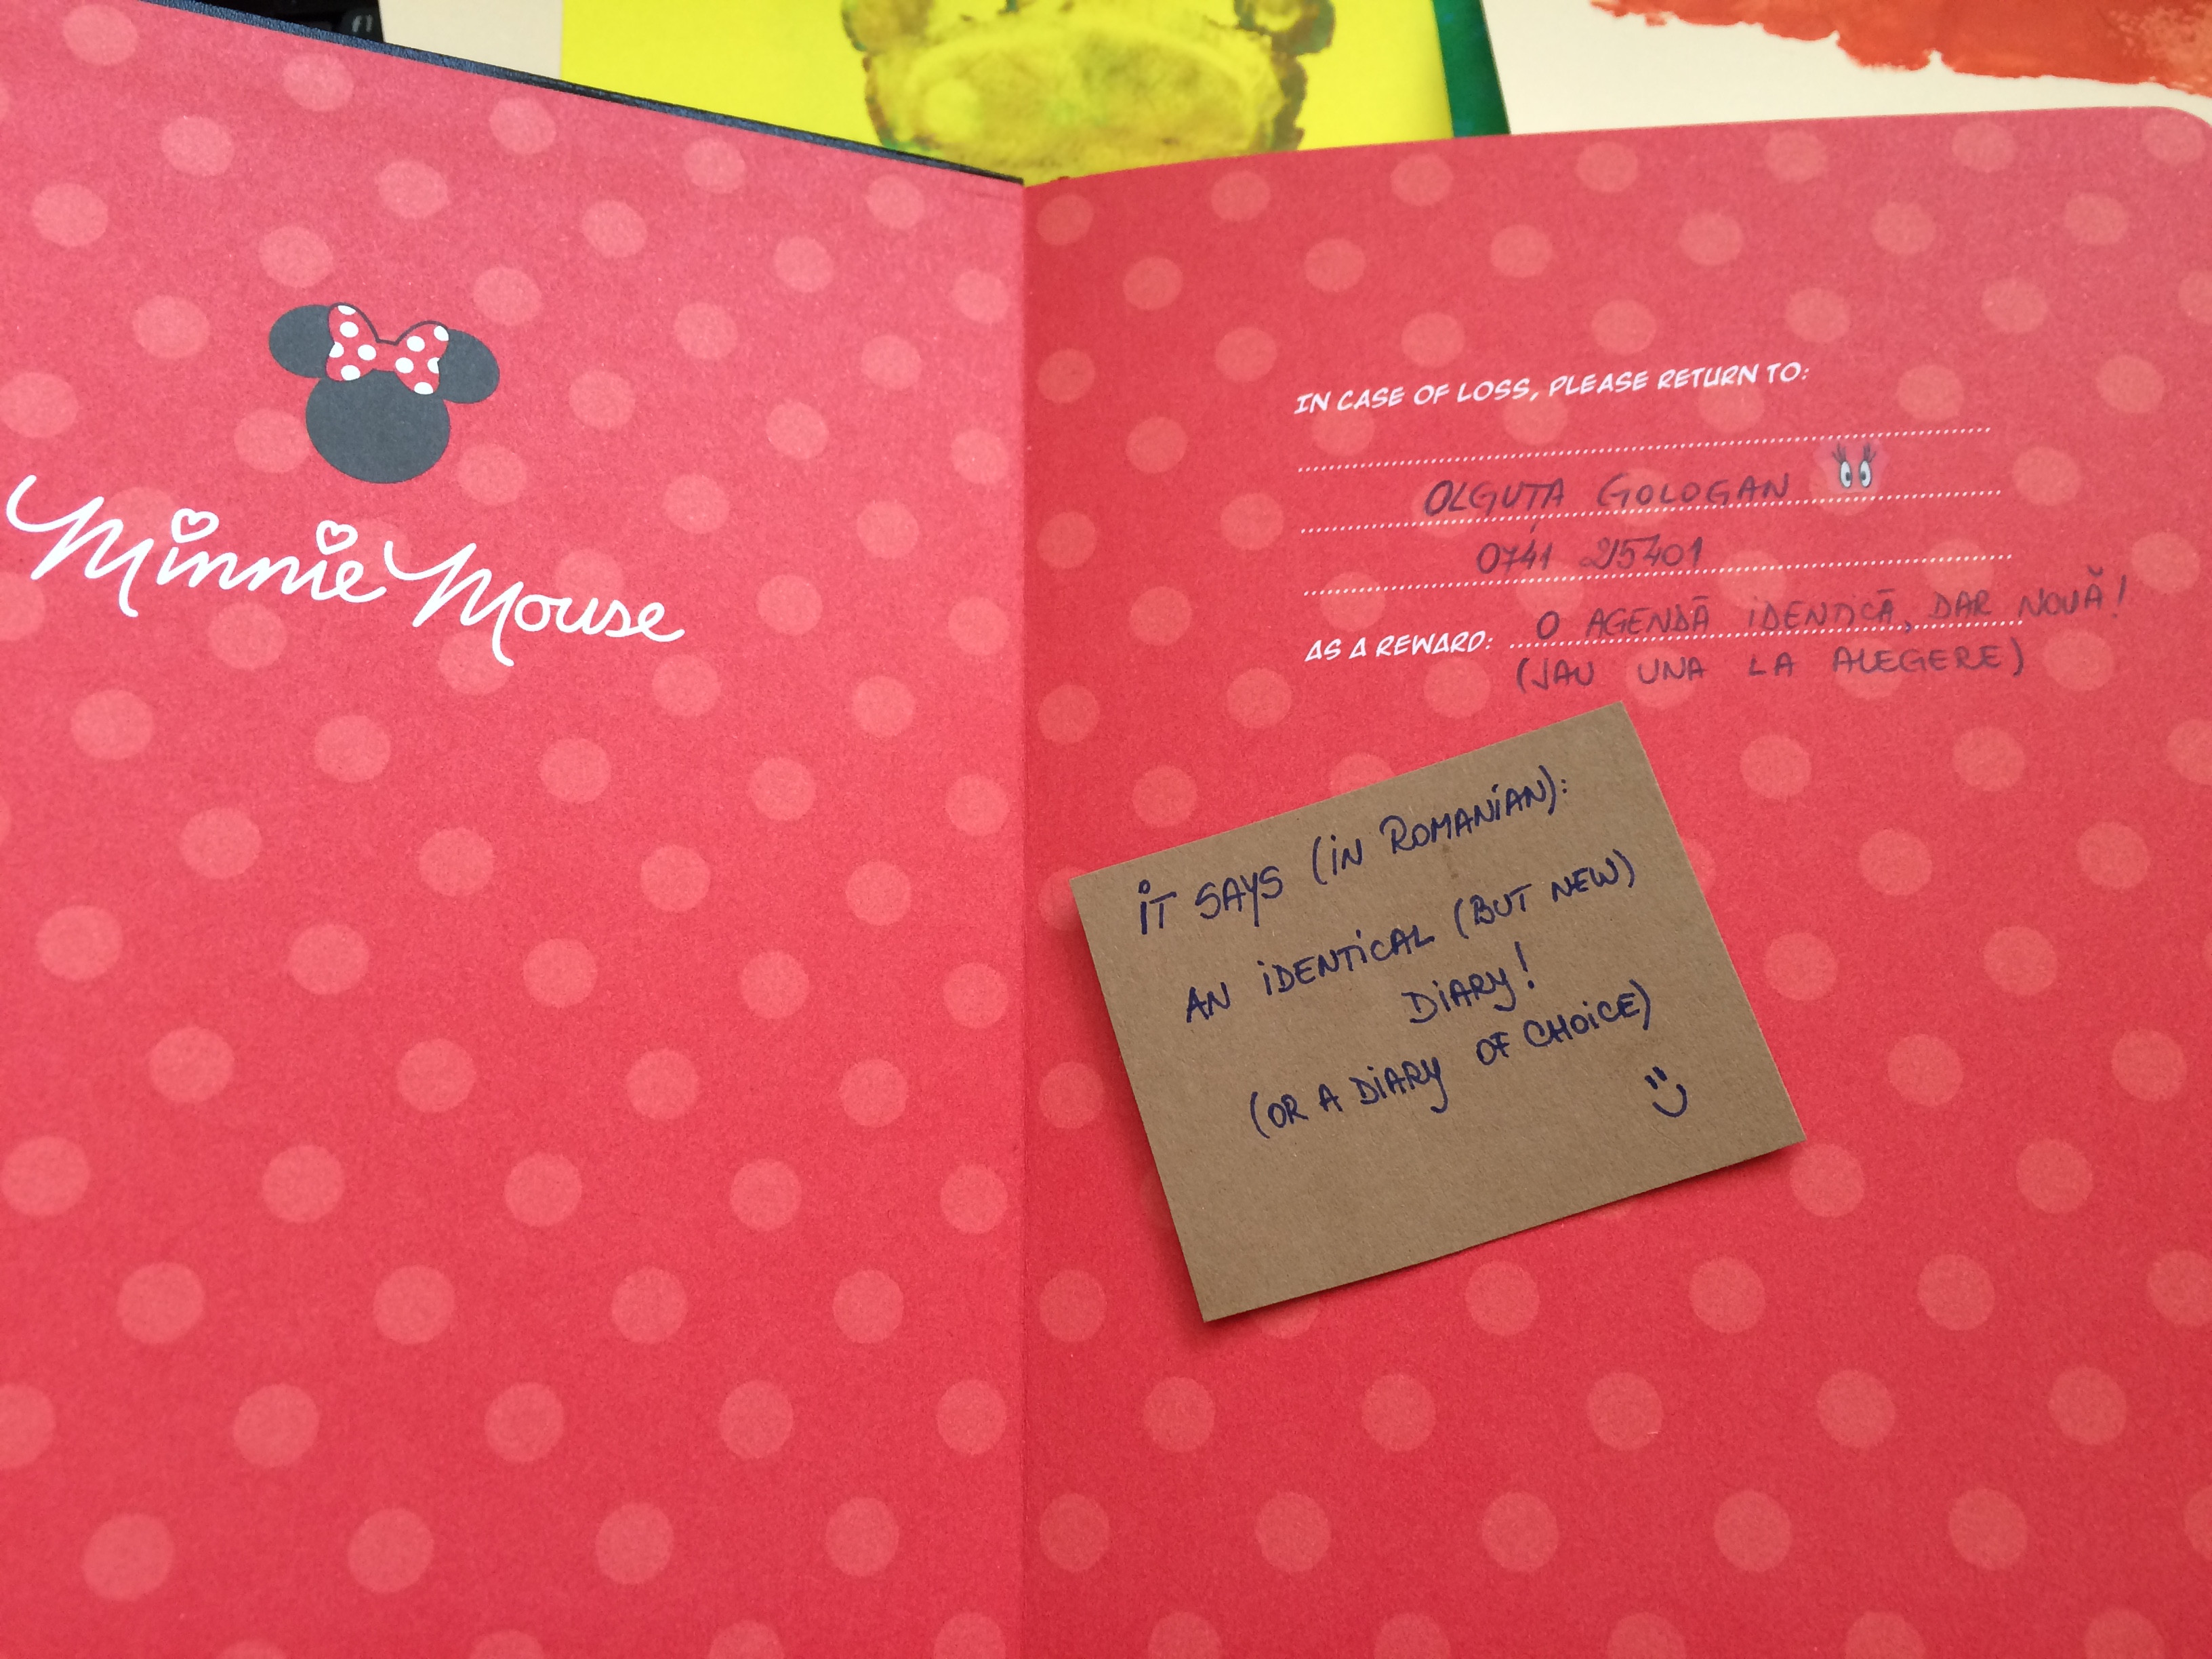 Minnie Mouse
IN CASE OF LOSS, PLEASE RETURN TO:
OLGUȚA GOLOGAN
0741 215401
AS A REWARD: O AGENDĂ IDENTICĂ, DAR NOUĂ!
(SAU UNA LA ALEGERE)
IT SAYS (IN ROMANIAN):
AN IDENTICAL (BUT NEW)
DIARY!
(OR A DIARY OF CHOICE)